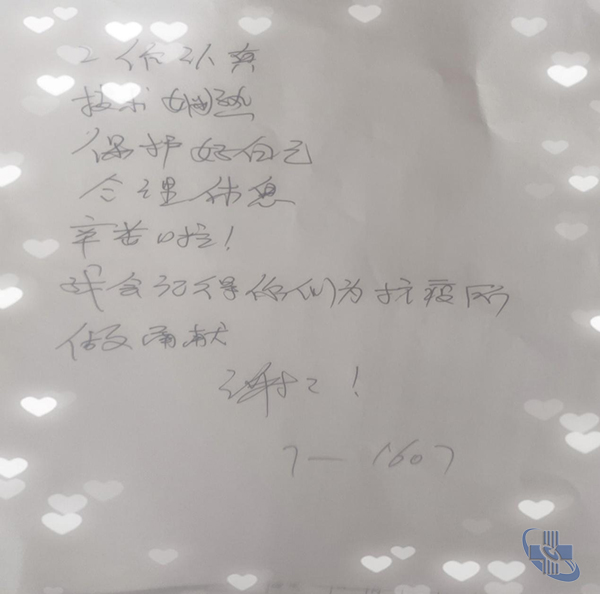 工作认真
技术娴熟
保护好自己
合理休息
辛苦啦！
我会记得你们为抗疫所
做贡献
谢谢！
7—1607